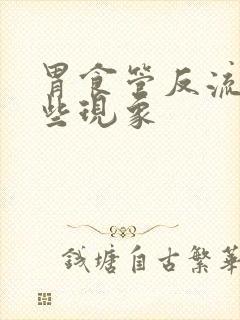 胃食管反流
些现象
钱塘自古繁華